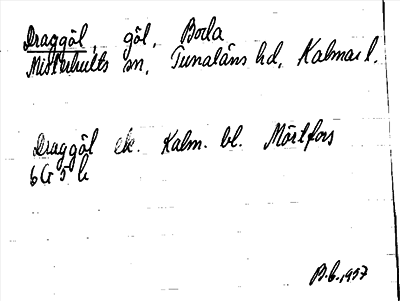 Draggöl, göl, Boda
Misterhults sn, Tunaläns hd, Kalmar l.
Draggöl ek. Kalm. bl. Mörtfors
6G 5h
B.b. 1957